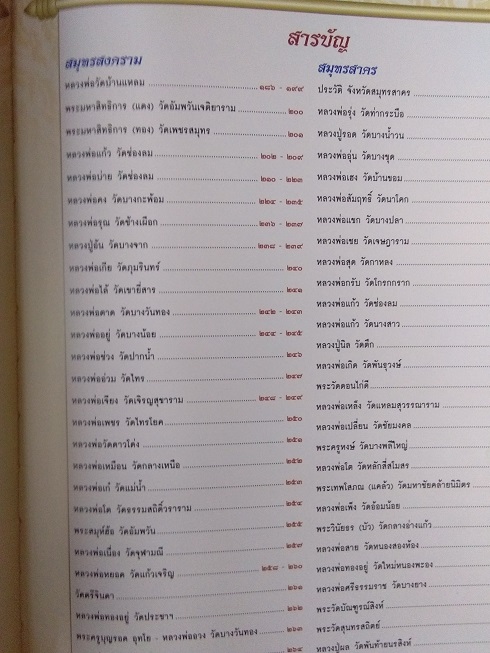 สารบัญ
สมุทรสงคราม
หลวงพ่อวัดบ้านแหลม ๑๘๖ - ๑๙๙
พระมหาสิทธิการ (แดง) วัดอัมพวันเจติยาราม ๒๐๐
พระมหาสิทธิการ (ทอง) วัดเพชรสมุทร ๒๐๑
หลวงพ่อแก้ว วัดช่องลม ๒๐๒ - ๒๐๙
หลวงพ่อบ่าย วัดช่องลม ๒๑๐ - ๒๒๓
หลวงพ่อคง วัดบางกะพ้อม ๒๒๔ - ๒๓๕
หลวงพ่อรุณ วัดช้างเผือก ๒๓๖ - ๒๓๗
หลวงปู่อ้น วัดบางจาก ๒๓๘ - ๒๓๙
หลวงพ่อเกีย วัดภุมรินทร์ ๒๔๐
หลวงพ่อใต้ วัดเขายี่สาร ๒๔๑
หลวงพ่อตาด วัดบางวันทอง ๒๔๒ - ๒๔๓
หลวงพ่ออยู่ วัดบางน้อย ๒๔๔ - ๒๔๕
หลวงพ่อช่วง วัดปากน้ำ ๒๔๖
หลวงพ่ออ่วม วัดไทร ๒๔๗
หลวงพ่อเจียง วัดเจริญสุขาราม ๒๔๘ - ๒๔๙
หลวงพ่อเพชร วัดไทรโยค ๒๕๐
หลวงพ่อวัดดาวโด่ง ๒๕๑
หลวงพ่อเหมือน วัดกลางเหนือ ๒๕๒
หลวงพ่อเก๋ วัดแม่น้ำ ๒๕๓
หลวงพ่อโต วัดธรรมสถิติ์วราราม ๒๕๔
พระสมุห์ฮ้อ วัดอัมพวัน ๒๕๕
หลวงพ่อเนื่อง วัดจุฬามณี ๒๕๗
หลวงพ่อหยอด วัดแก้วเจริญ ๒๕๘ - ๒๖๐
วัดศรัทธา
หลวงพ่อทองอยู่ วัดประชาฯ ๒๖๒
พระครูบุญรอด อุทโย - หลวงพ่อถวง วัดบางวันทอง ๒๖๓
๒๖๔
สมุทรสาคร
ประวัติ จังหวัดสมุทรสาคร
หลวงพ่อรุ่ง วัดท่ากระบือ
หลวงปู่รอด วัดบางน้ำวน
หลวงพ่ออุ่น วัดบางขุด
หลวงพ่อเฮง วัดบ้านขอม
หลวงพ่อสัมฤทธิ์ วัดนาโคก
หลวงพ่อแขก วัดบางปลา
หลวงพ่อเชย วัดเจษฎาราม
หลวงพ่อสุด วัดกาหลง
หลวงพ่อกรับ วัดโกรกกราก
หลวงพ่อแก้ว วัดช่องลม
หลวงพ่อแก้ว วัดนางสาว
หลวงปู่นิล วัดตึก
หลวงพ่อเกิด วัดพันธุวงษ์
พระวัดดอนไก่ดี
หลวงพ่อเหล็ง วัดแหลมสุวรรณาราม
หลวงพ่อเปลี่ยน วัดชัยมงคล
พระครูหงษ์ วัดบางพลีใหญ่
หลวงพ่อโต วัดหลักสี่สโมสร
พระเทพโสภณ (แคล้ว) วัดมหาชัยคล้ายนิมิตร
หลวงพ่อเพ็ง วัดอ้อมน้อย
พระวินัยธร (บัว) วัดกลางอ่างแก้ว
หลวงพ่อสาย วัดหนองสองห้อง
หลวงพ่อทองอยู่ วัดใหม่หนองพะอง
หลวงพ่อศรีธรรมราช วัดบางยาง
พระวัดบัณฑูรณ์สิงห์
พระวัดสุนทรสถิตย์
หลวงปู่ผล วัดพันท้ายนรสิงห์